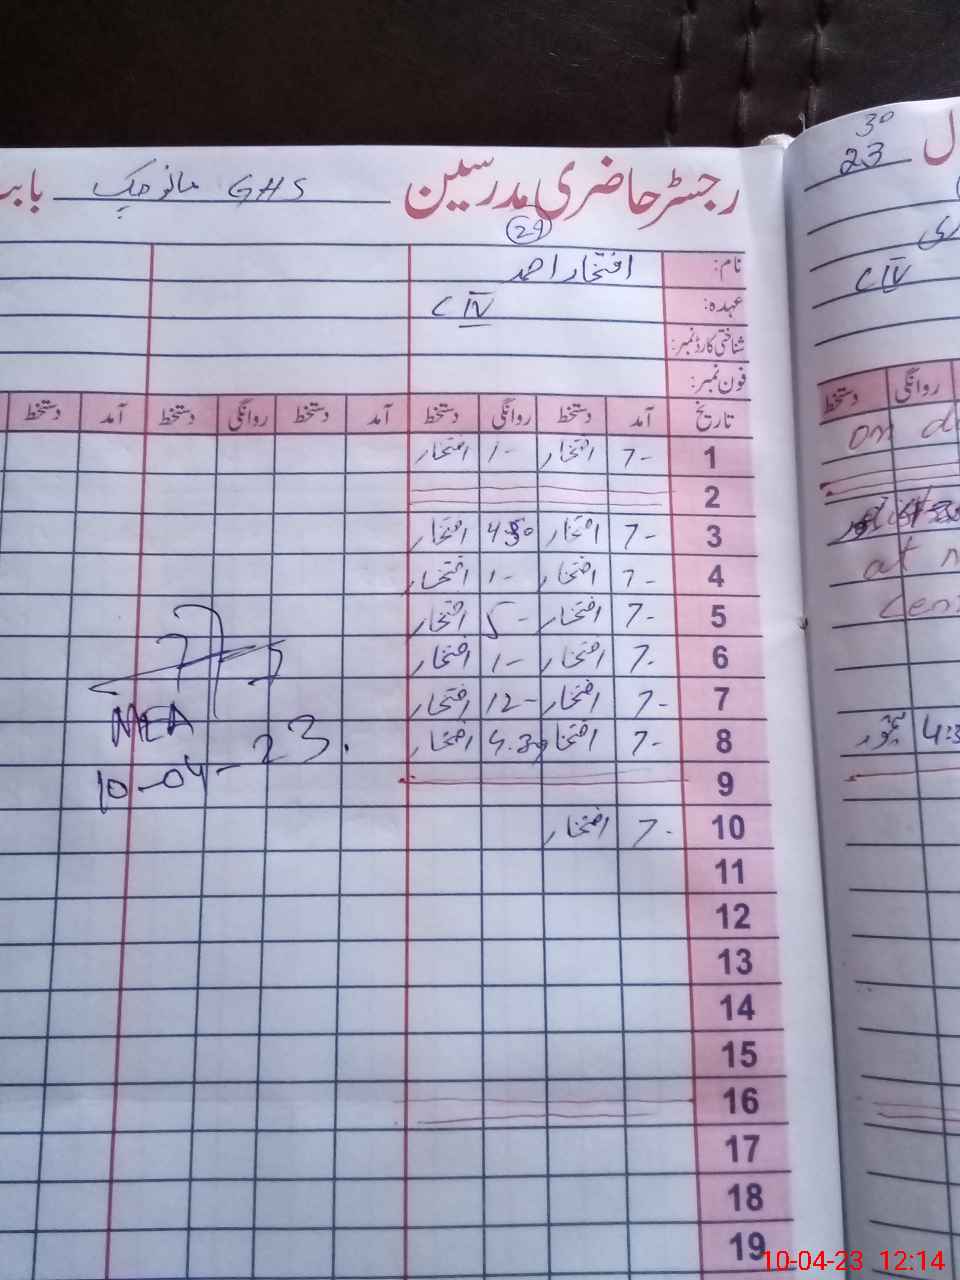 رجسٹر حاضری مدرسین GHS مانو چک بابت
29
نام: افتخار احمد
عہدہ: C IV
شناختی کارڈ نمبر:
فون نمبر:
تاریخ آمد دستخط روانگی دستخط آمد دستخط روانگی دستخط آمد دستخط
1 7- افتخار 1- افتخار
2
3 7- افتخار افتخار
4 7- افتخار 1- افتخار
5 7- افتخار 5- افتخار
6 7- افتخار 1- افتخار
7 7- افتخار 12- افتخار
8 7- افتخار 4.30 افتخار
9
10 7- افتخار
11
12
13
14
15
16
17
18
19
MEA
10-04-23.
30
23
ل
C IV
روانگی دستخط
on
at
4:3
10-04-23 12:14